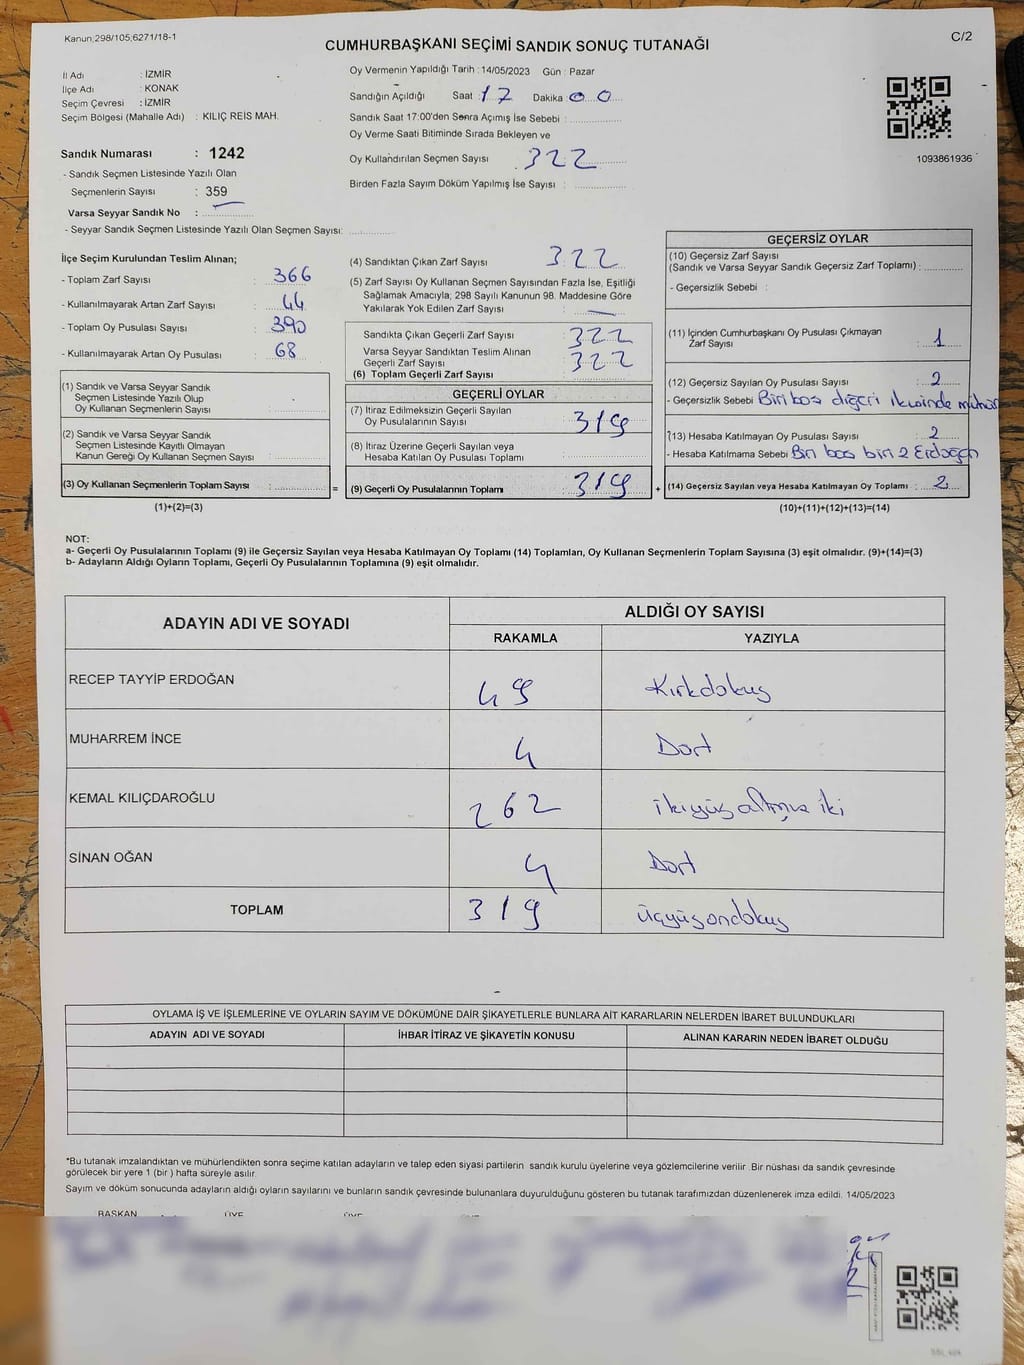 Kanun;298/105,6271/18-1
CUMHURBAŞKANI SEÇİMİ SANDIK SONUÇ TUTANAĞI
C/2
İl Adı : İZMİR
İlçe Adı : KONAK
Seçim Çevresi : İZMİR
Seçim Bölgesi (Mahalle Adı) : KILIÇ REİS MAH.
Oy Vermenin Yapıldığı Tarih : 14/05/2023 Gün : Pazar
Sandığın Açıldığı Saat : 17 Dakika 00
Sandık Saat 17:00'den Sonra Açımış İse Sebebi :
Oy Verme Saati Bitiminde Sırada Bekleyen ve
Oy Kullandırılan Seçmen Sayısı : 322
Birden Fazla Sayım Döküm Yapılmış İse Sayısı :
1093861936
Sandık Numarası : 1242
- Sandık Seçmen Listesinde Yazılı Olan
Seçmenlerin Sayısı : 359
Varsa Seyyar Sandık No :
- Seyyar Sandık Seçmen Listesinde Yazılı Olan Seçmen Sayısı:
İlçe Seçim Kurulundan Teslim Alınan;
- Toplam Zarf Sayısı : 366
- Kullanılmayarak Artan Zarf Sayısı : 44
- Toplam Oy Pusulası Sayısı : 390
- Kullanılmayarak Artan Oy Pusulası : 68
(1) Sandık ve Varsa Seyyar Sandık
Seçmen Listesinde Yazılı Olup
Oy Kullanan Seçmenlerin Sayısı :
(2) Sandık ve Varsa Seyyar Sandık
Seçmen Listesinde Kayıtlı Olmayan
Kanun Gereği Oy Kullanan Seçmen Sayısı :
(3) Oy Kullanan Seçmenlerin Toplam Sayısı :
(1)+(2)=(3)
=
(4) Sandıktan Çıkan Zarf Sayısı : 322
(5) Zarf Sayısı Oy Kullanan Seçmen Sayısından Fazla İse, Eşitliği
Sağlamak Amacıyla; 298 Sayılı Kanunun 98. Maddesine Göre
Yakılarak Yok Edilen Zarf Sayısı : —
Sandıkta Çıkan Geçerli Zarf Sayısı : 322
Varsa Seyyar Sandıktan Teslim Alınan
Geçerli Zarf Sayısı : 322
(6) Toplam Geçerli Zarf Sayısı :
GEÇERLİ OYLAR
(7) İtiraz Edilmeksizin Geçerli Sayılan
Oy Pusulalarının Sayısı : 319
(8) İtiraz Üzerine Geçerli Sayılan veya
Hesaba Katılan Oy Pusulası Toplamı :
(9) Geçerli Oy Pusulalarının Toplamı : 319
+
GEÇERSİZ OYLAR
(10) Geçersiz Zarf Sayısı
(Sandık ve Varsa Seyyar Sandık Geçersiz Zarf Toplamı) :
- Geçersizlik Sebebi :
(11) İçinden Cumhurbaşkanı Oy Pusulası Çıkmayan
Zarf Sayısı : 1
(12) Geçersiz Sayılan Oy Pusulası Sayısı : 2
- Geçersizlik Sebebi Biri boş diğeri ikisinde mühür
(13) Hesaba Katılmayan Oy Pusulası Sayısı : 2
- Hesaba Katılmama Sebebi Biri boş biri 2 Erdoğan
(14) Geçersiz Sayılan veya Hesaba Katılmayan Oy Toplamı : 2
(10)+(11)+(12)+(13)=(14)
NOT:
a- Geçerli Oy Pusulalarının Toplamı (9) ile Geçersiz Sayılan veya Hesaba Katılmayan Oy Toplamı (14) Toplamları, Oy Kullanan Seçmenlerin Toplam Sayısına (3) eşit olmalıdır. (9)+(14)=(3)
b- Adayların Aldığı Oyların Toplamı, Geçerli Oy Pusulalarının Toplamına (9) eşit olmalıdır.
ADAYIN ADI VE SOYADI
ALDIĞI OY SAYISI
RAKAMLA YAZIYLA
RECEP TAYYİP ERDOĞAN 49 Kırkdokuz
MUHARREM İNCE 4 Dört
KEMAL KILIÇDAROĞLU 262 ikiyüzaltmış iki
SİNAN OĞAN 4 Dört
TOPLAM 319 üçyüzondokuz
OYLAMA İŞ VE İŞLEMLERİNE VE OYLARIN SAYIM VE DÖKÜMÜNE DAİR ŞİKAYETLERLE BUNLARA AİT KARARLARIN NELERDEN İBARET BULUNDUKLARI
ADAYIN ADI VE SOYADI İHBAR İTİRAZ VE ŞİKAYETİN KONUSU ALINAN KARARIN NEDEN İBARET OLDUĞU
*Bu tutanak imzalandıktan ve mühürlendikten sonra seçime katılan adayların ve talep eden siyasi partilerin sandık kurulu üyelerine veya gözlemcilerine verilir. Bir nüshası da sandık çevresinde
görülecek bir yere 1 (bir ) hafta süreyle asılır.
Sayım ve döküm sonucunda adayların aldığı oyların sayılarını ve bunların sandık çevresinde bulunanlara duyurulduğunu gösteren bu tutanak tarafımızdan düzenlenerek imza edildi. 14/05/2023
BAŞKAN ÜYE ÜYE